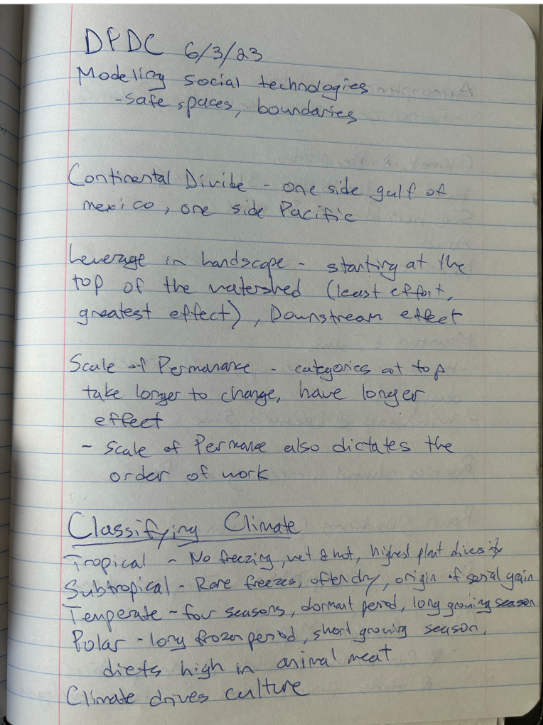 DPDC 6/3/23
Modeling social technologies
-safe spaces, boundaries
Continental Divide - one side gulf of
mexico, one side Pacific
Leverage in Landscape - starting at the
top of the watershed (least effort,
greatest effect), Downstream effect
Scale of Permanance - categories at top
take longer to change, have longer
effect
- Scale of Permance also dictates the
order of work
Classifying Climate
Tropical - No freezing, wet & hot, highest plant diversity
Subtropical - Rare freezes, often dry, origin of grain
Temperate - four seasons, dormant period, long growing season
Polar - long frozen period, short growing season,
diets high in animal meat
Climate drives culture